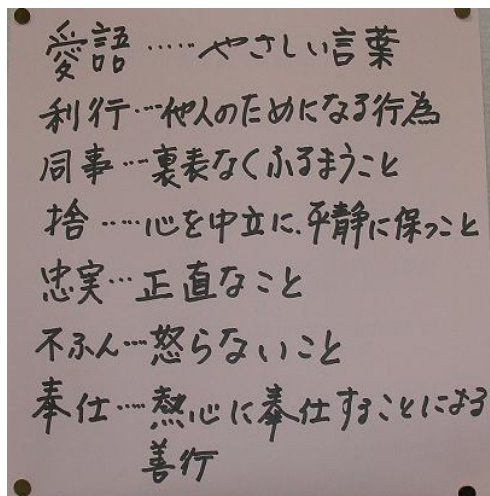 愛語……やさしい言葉
利行…他人のためになる行為
同事…裏表なくふるまうこと
捨……心を中立に、平静に保つこと
忠実…正直なこと
不ふん…怒らないこと
奉仕……熱心に奉仕することによる
善行